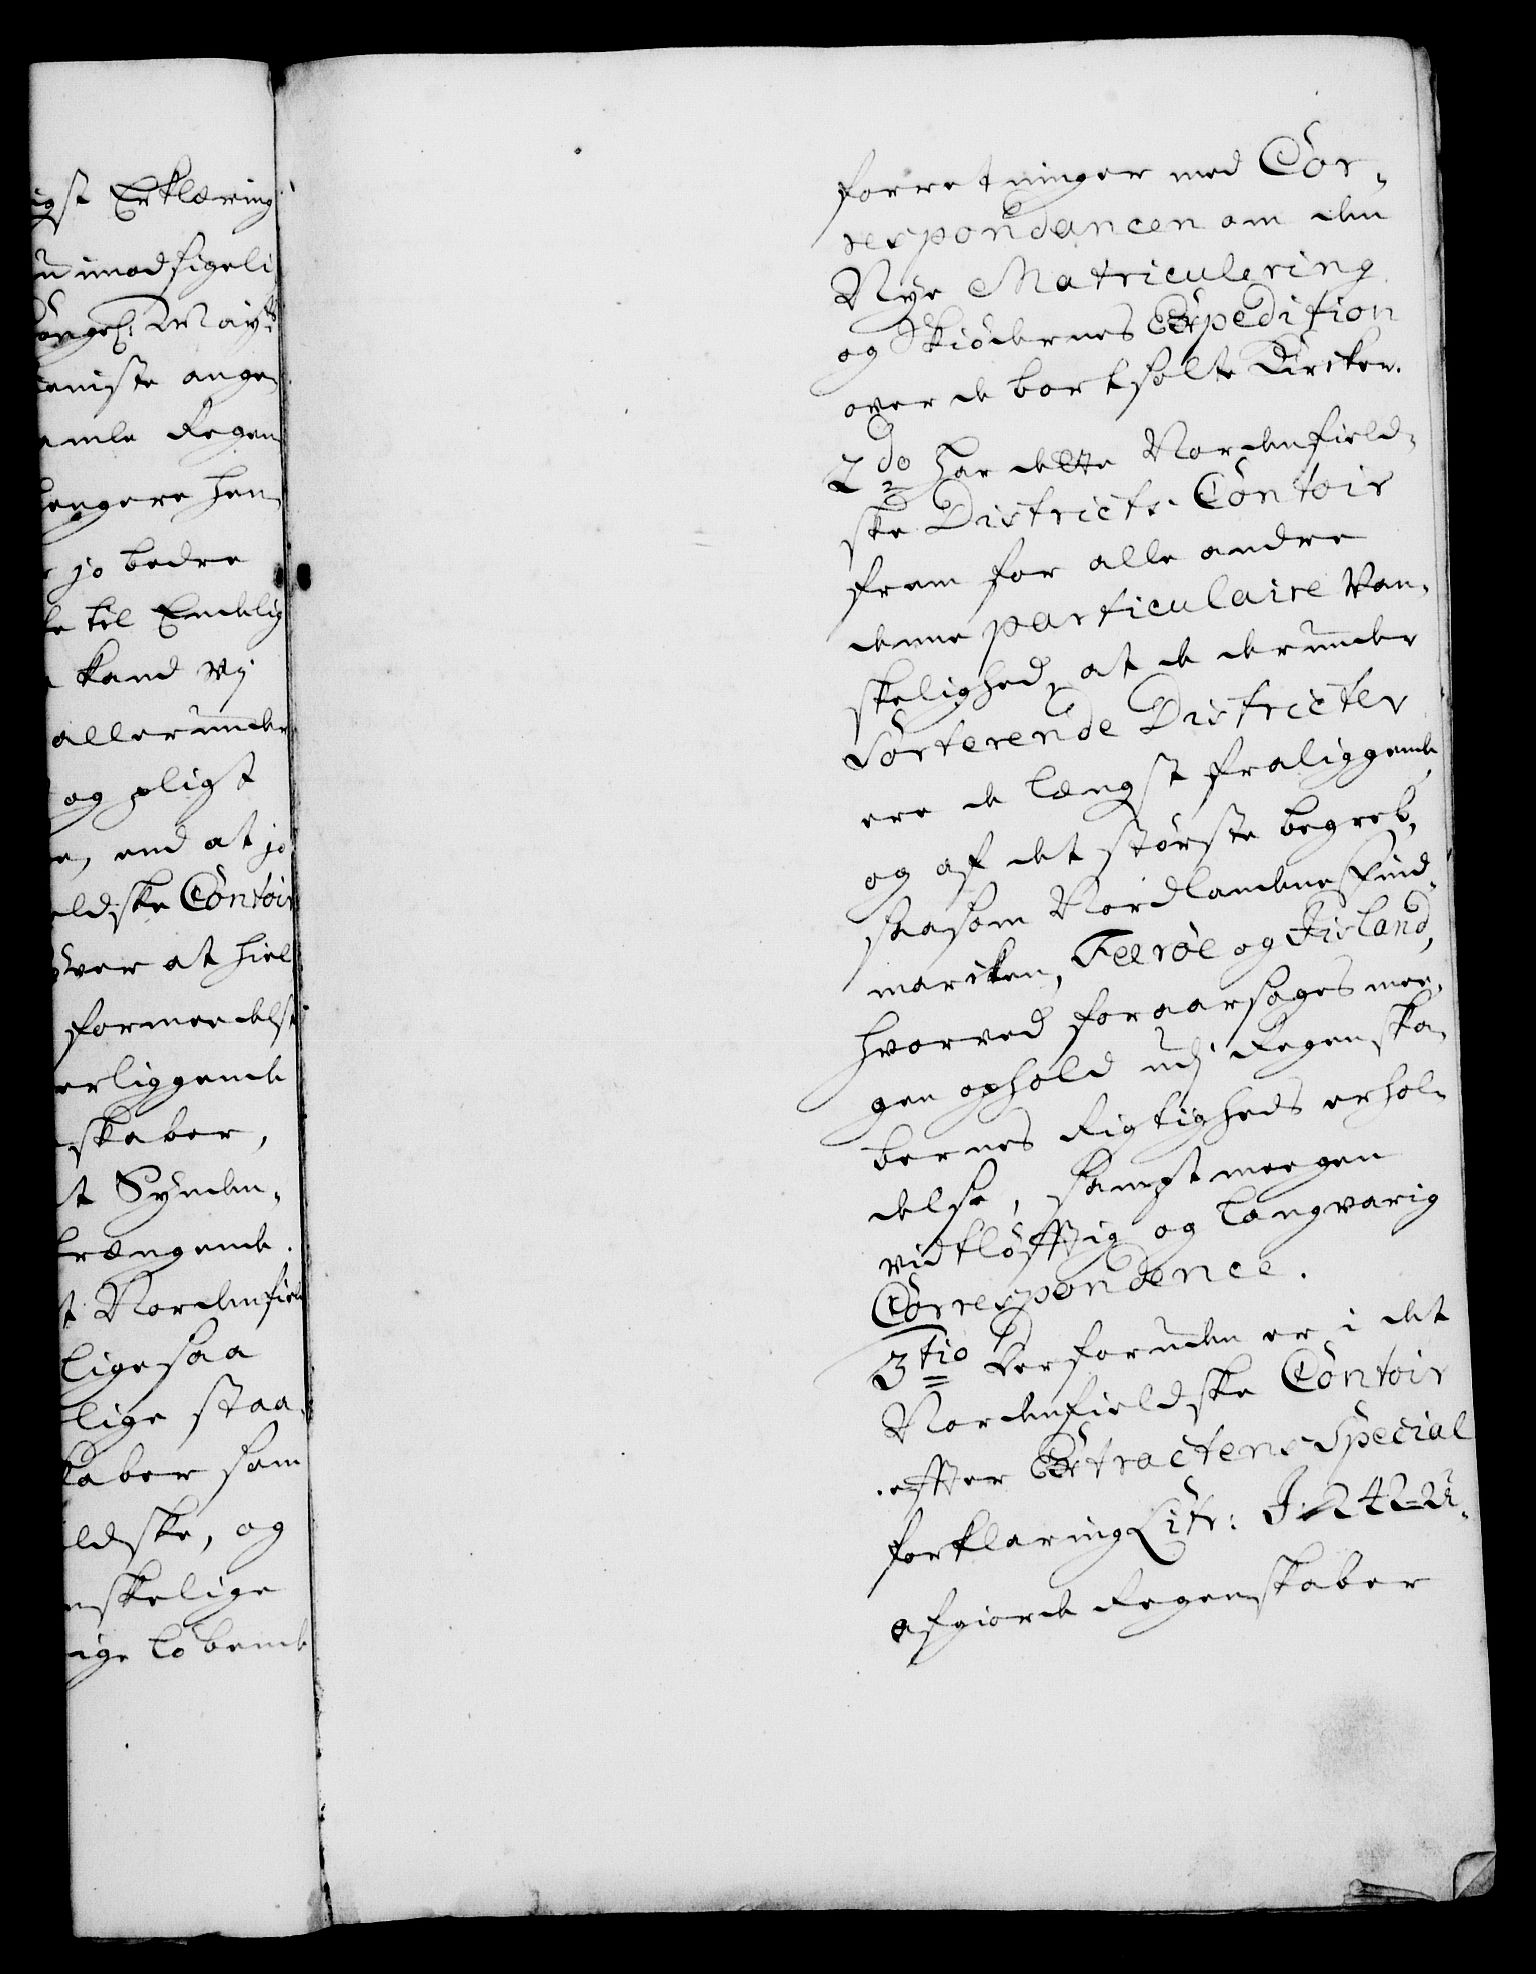 igst Erklæring
imodsigeli
Kongel: May.ts
eniste ange
amle Regen
hengere hen
jo bedre
til Endelig
kand vj
allerunder
og pligt
e, end at jo
eldske Contoir
over at hiel
formeedelst
erliggende
skaber,
t Synden,
trængende.
t Nordenfiel
lige saa
lige staa,
kaber som
ldske, og
nskelige
ige løbende
forretninger med Cor,
respondancen om den
Nye Matriculering
og Skiødernes Expedition
over de bortsolte Kircker.
2do har dette Nordenfield,
ske Districts Contoir
frem for alle andre
denne particulaire Van,
skelighed, at de derunder
Sorterende Districter
ere de længst fraliggende,
og af det største begreb,
saasom Nordlandene, Find,
marcken, Færøe og Iisland,
hvorved foraarsages mee,
gen ophold udj Regenska,
bernes Rigtigheds erhol,
delse, sampt meegen
vidtløfftig og langvarig
Correspondence.
3tio Desforuden er i det
Nordenfieldske Contoir
effter Extractens Special
forklaring Litr: J. 242
afgiorde Regenskaber